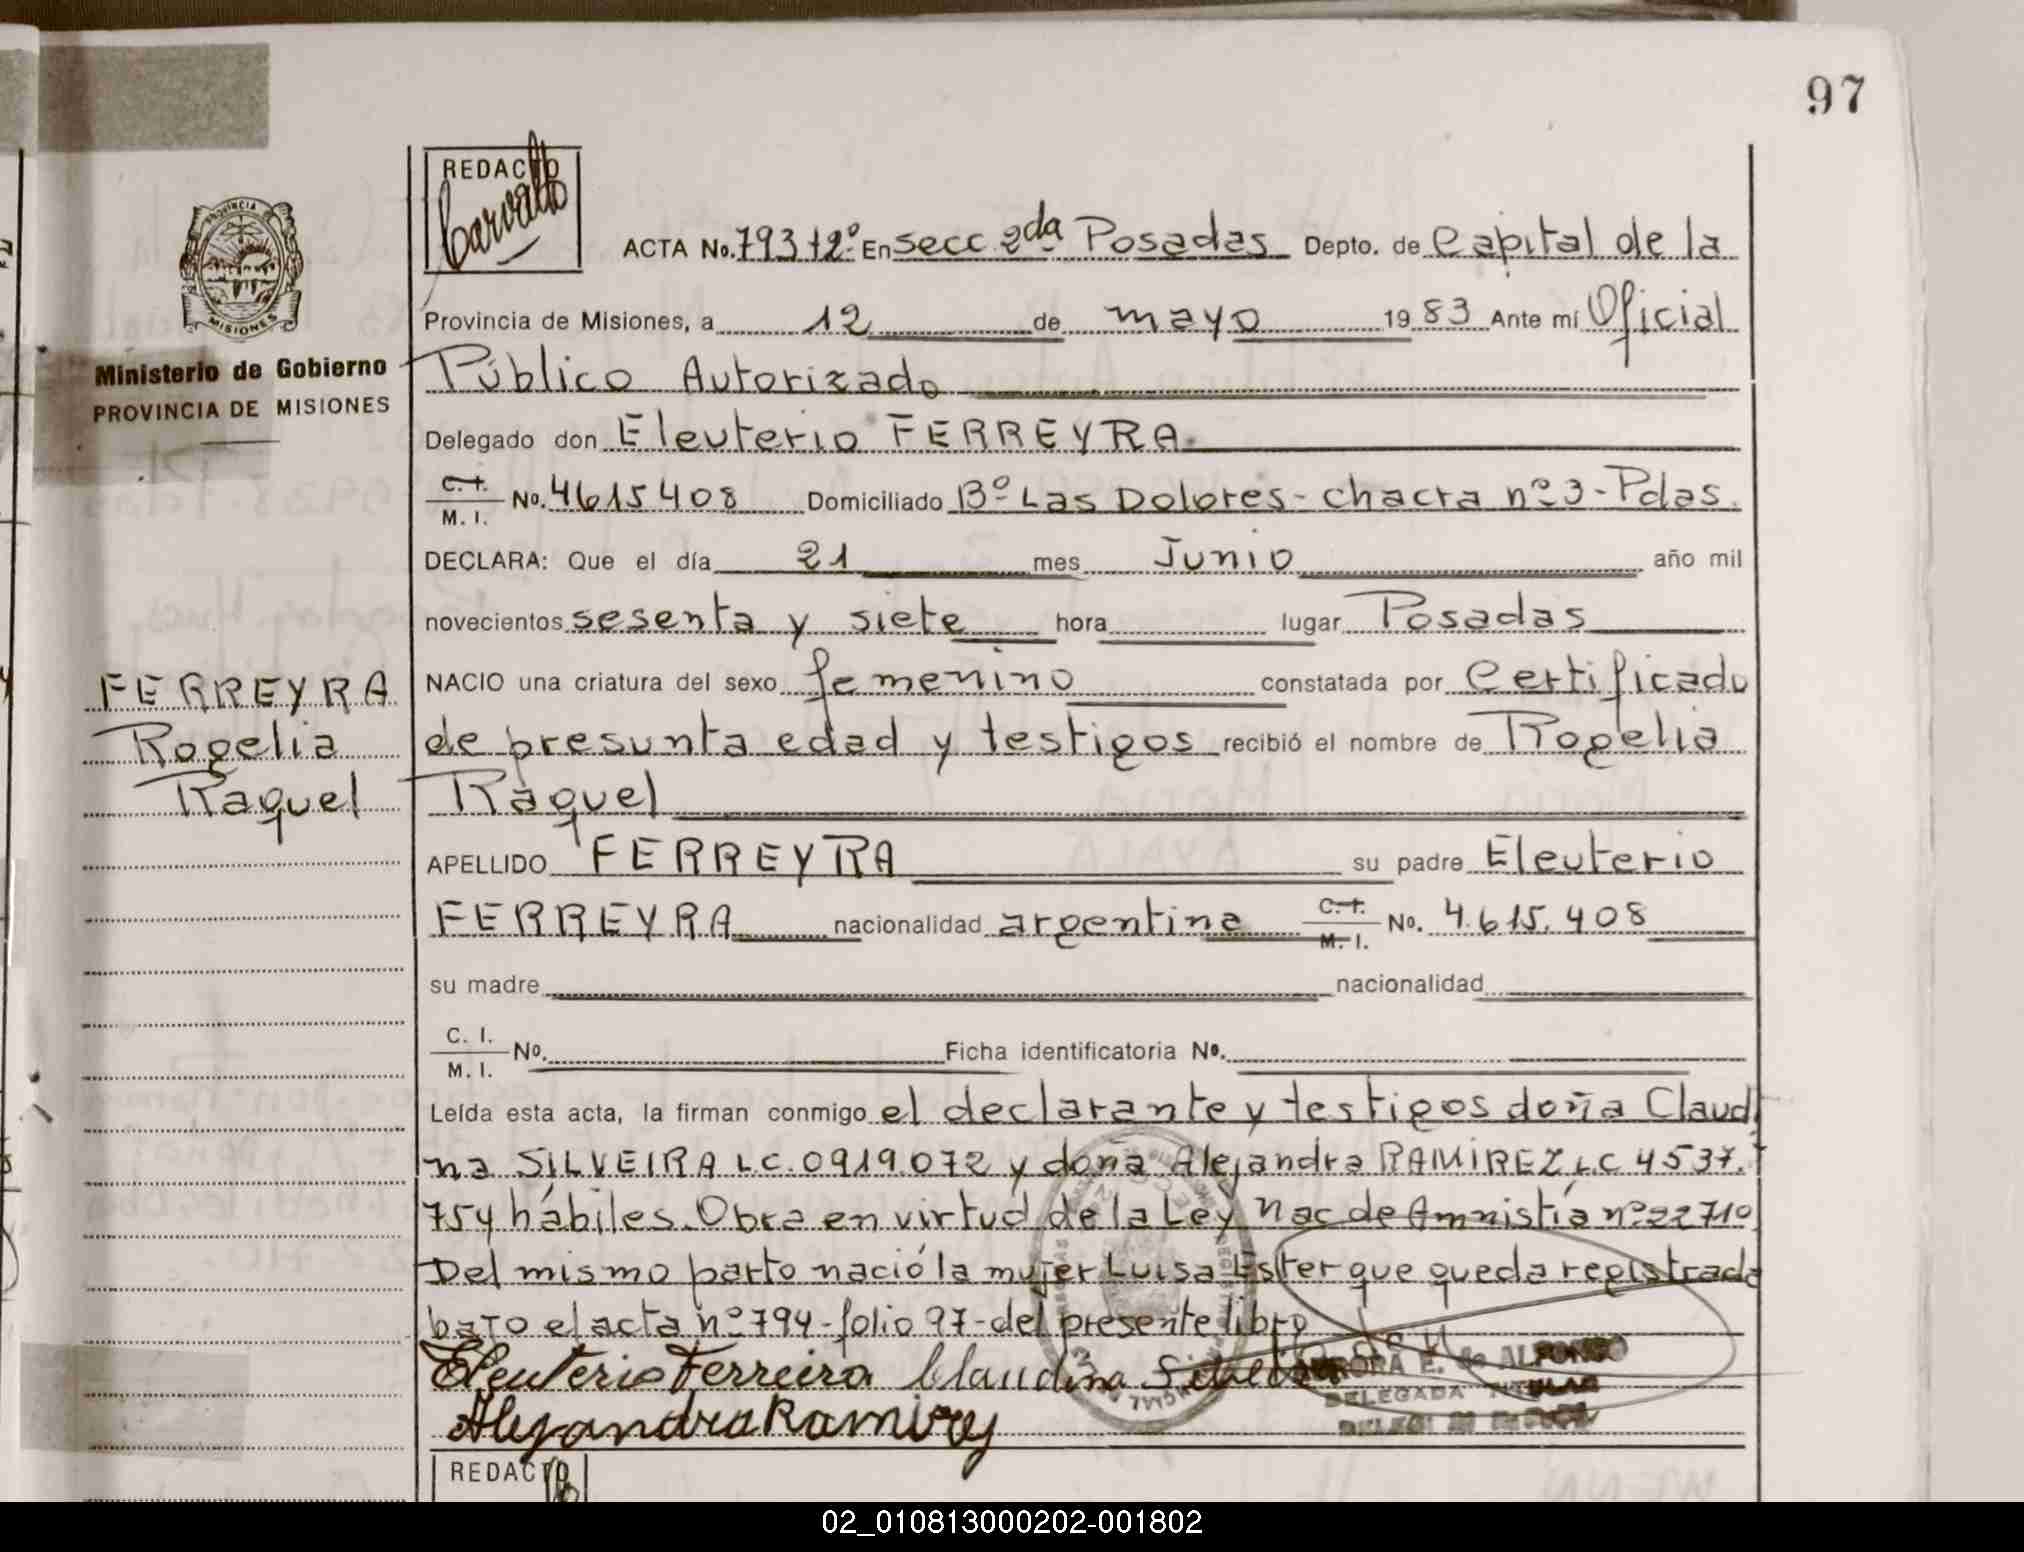 97
REDACTO
Carvallo
PROVINCIA
MISIONES
Ministerio de Gobierno
PROVINCIA DE MISIONES
ACTA No. 793 T2º. En secc. 2da Posadas Depto. de Capital de la
Provincia de Misiones, a 12 de mayo 1983 Ante mí Oficial
Público Autorizado
Delegado don Eleuterio FERREYRA.
C. I. / M. I. No. 4615408 Domiciliado Bº Las Dolores - chacra nº 3 - Pdas.
DECLARA: Que el día 21 mes Junio año mil
novecientos sesenta y siete hora lugar Posadas
NACIO una criatura del sexo femenino constatada por Certificado
de presunta edad y testigos recibió el nombre de Rogelia
Raquel
FERREYRA
Rogelia
Raquel
APELLIDO FERREYRA su padre Eleuterio
FERREYRA nacionalidad argentina C. I. / M. I. No. 4.615.408
su madre nacionalidad
C. I. / M. I. No. Ficha identificatoria No.
Leída esta acta, la firman conmigo el declarante y testigos doña Claudi
na SILVEIRA L.C. 0919.072 y doña Alejandra RAMIREZ L.C 4537.
754 hábiles. Obra en virtud de la Ley Nac de Amnistía nº 22710
Del mismo parto nació la mujer Luisa Ester que queda registrada
bajo el acta nº 794 - folio 97 - del presente libro
Eleuterio Ferreira Claudina
Alejandra Ramirez
AURORA E. de ALFONSO
DELEGADA TITULAR
REDACTO
02_010813000202-001802